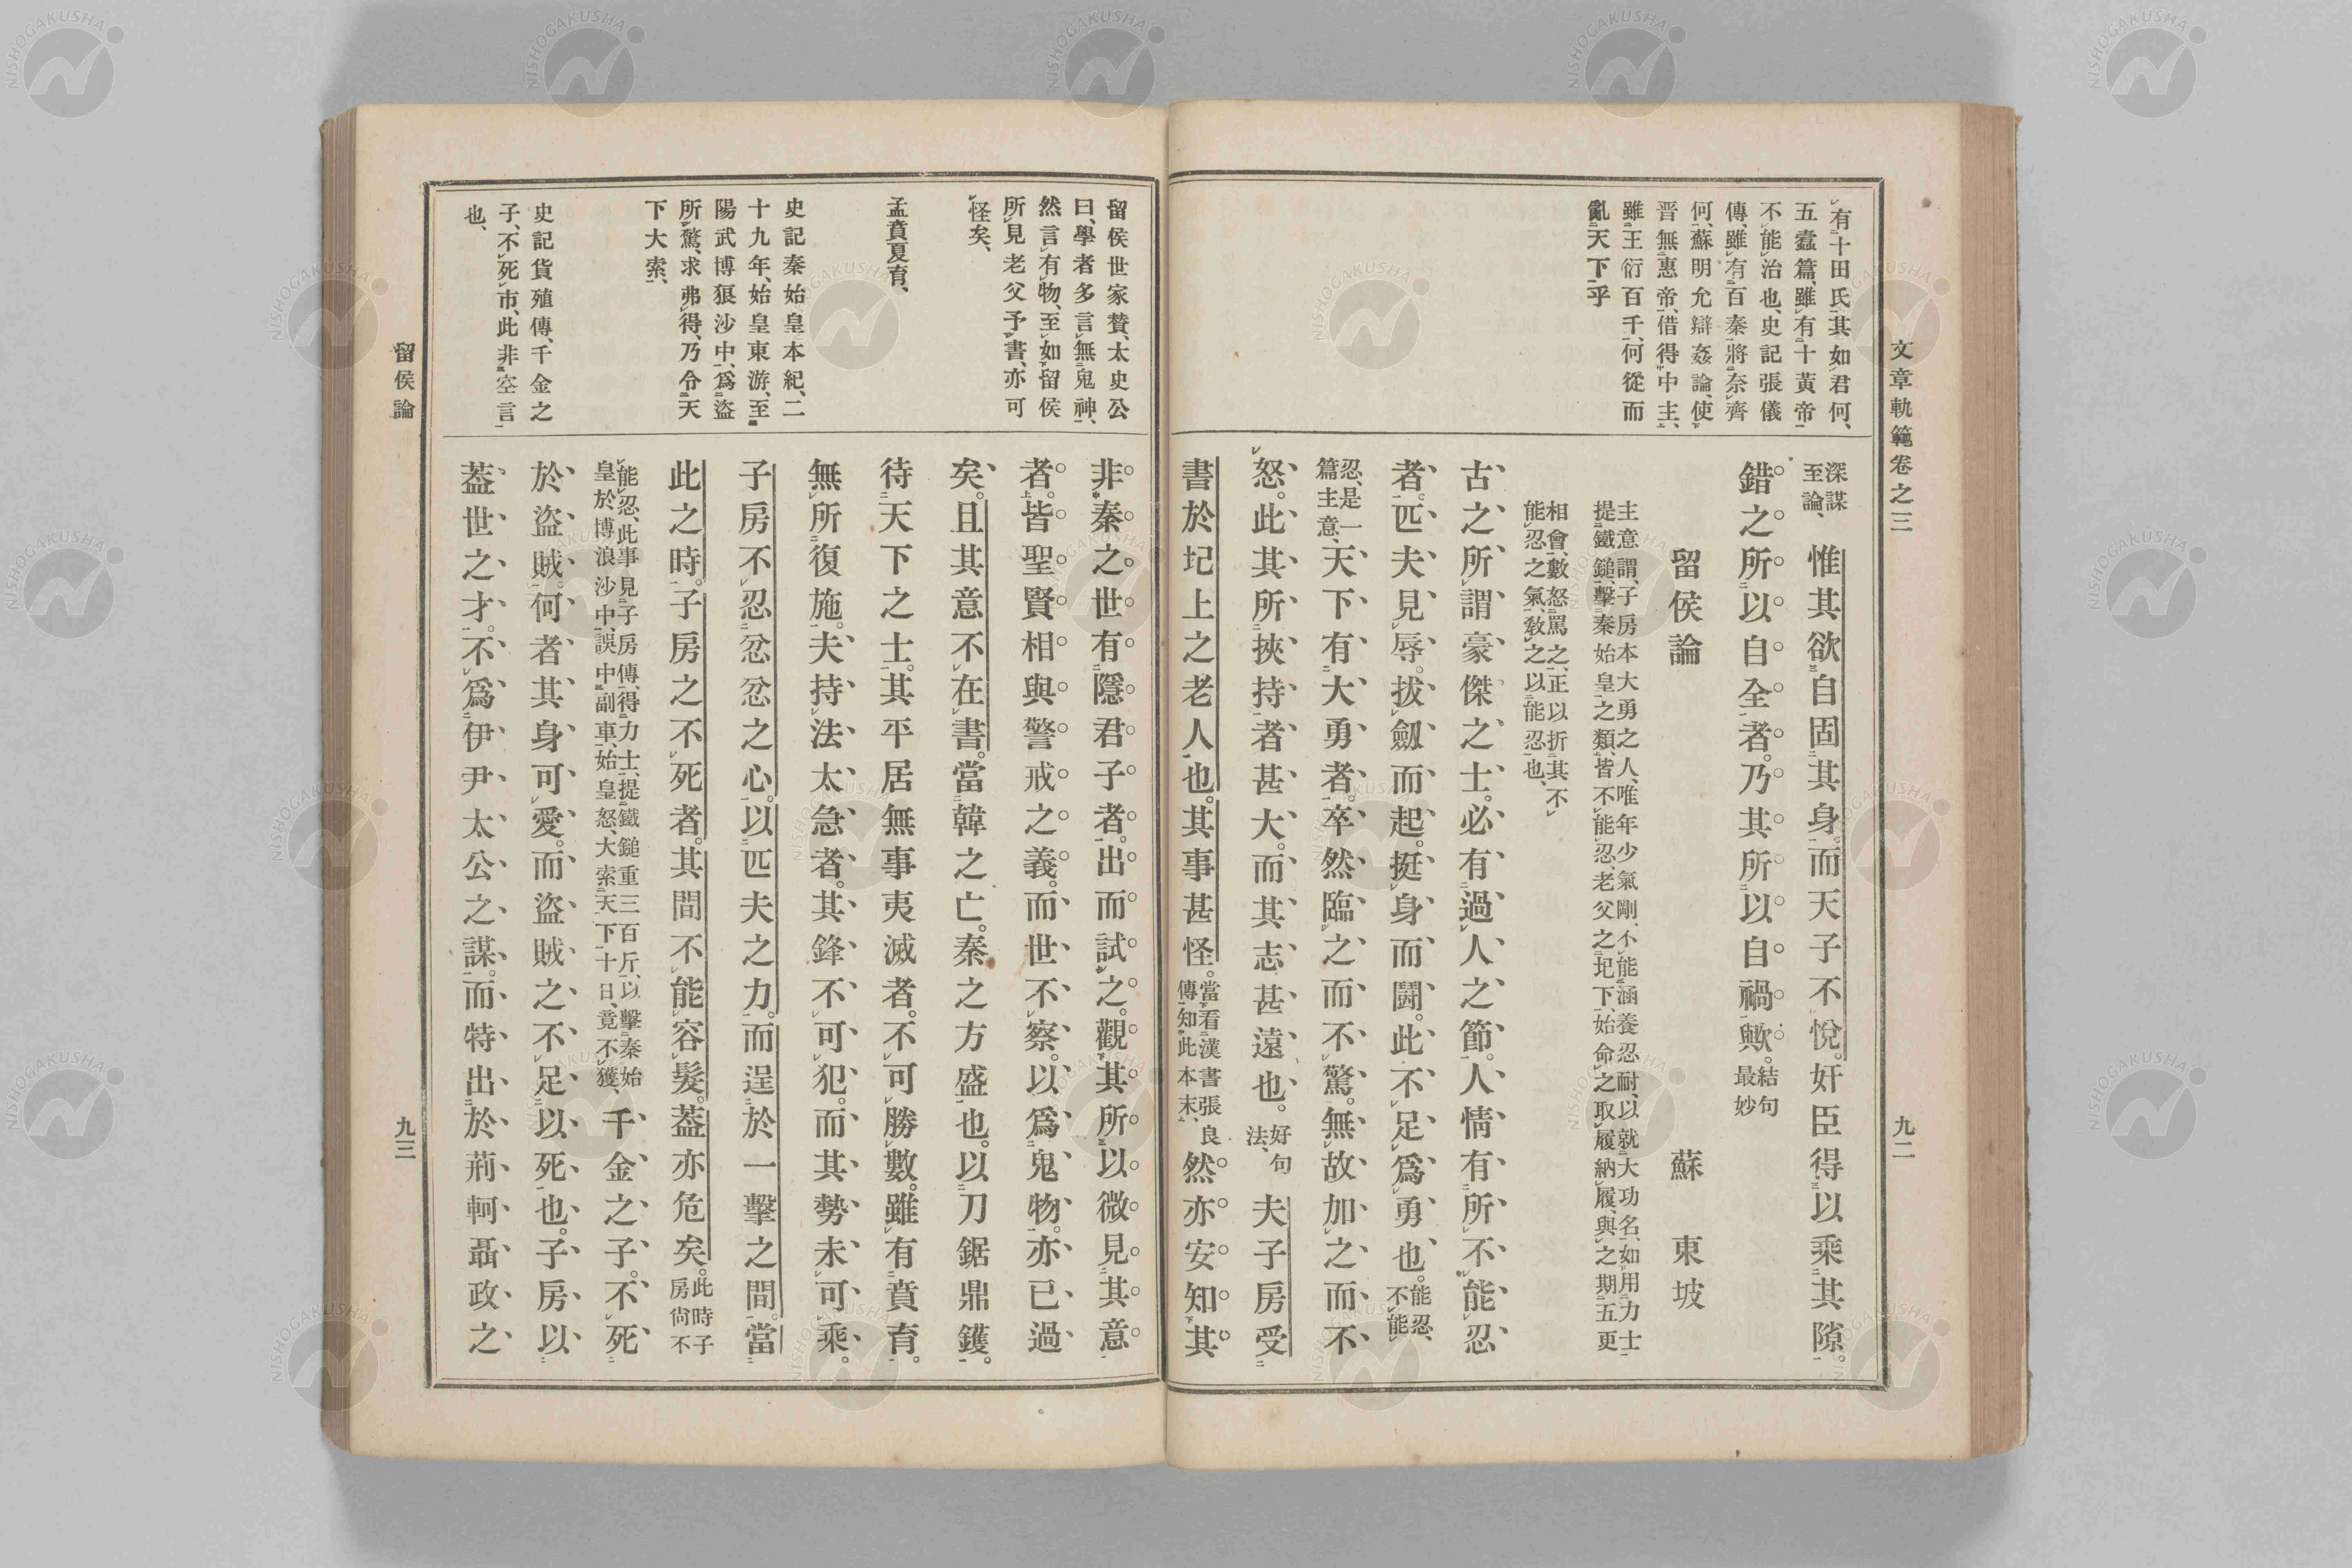 文章軌範卷之三
九二
有十田氏、其如君何、
五蠹篇、雖有十黃帝
不能治也、史記張儀
傳、雖有百秦將奈齊
何、蘇明允辯姦論、使
晋無惠帝、借得中主、
雖王衍百千、何從而
亂天下乎
深謀至論、惟其欲自固其身。而天子不悅。奸臣得以乘其隙。
錯之所以自全者。乃其所以自禍歟。結句最妙
留侯論 蘇東坡
主意謂、子房本大勇之人、唯年少氣剛、不能涵養忍耐、以就大功名、如用力士
提鐵鎚、擊秦始皇之類、皆不能忍、老父之圯下、始命之取履納履、與之期五更
相會、數怒罵之、正以折其不
能忍之氣、敎之以能忍也、
古之所謂豪傑之士。必有過人之節。人情有所不能忍
者。匹夫見辱。拔劒而起。挺身而鬪。此不足爲勇也。能忍、不能
忍、是一篇主意、天下有大勇者。卒然臨之而不驚。無故加之而不
怒。此其所挾持者甚大。而其志甚遠也。好句法、夫子房受
書於圯上之老人也。其事甚怪。當看漢書張良傳、知此本末、然亦安知其
留侯世家贊、太史公
曰、學者多言無鬼神、
然言有物、至如留侯
所見老父予書、亦可
怪矣、
孟賁夏育、
史記秦始皇本紀、二
十九年、始皇東游、至
陽武博狼沙中、爲盜
所驚、求弗得、乃令天
下大索、
史記貨殖傳、千金之
子、不死市、此非空言
也、
非秦之世有隱君子者。出而試之。觀其所以微見其意
者。皆聖賢相與警戒之義。而世不察。以爲鬼物。亦已過
矣。且其意不在書。當韓之亡。秦之方盛也。以刀鋸鼎鑊。
待天下之士。其平居無事夷滅者。不可勝數。雖有賁育。
無所復施。夫持法太急者。其鋒不可犯。而其勢未可乘。
子房不忍忿忿之心。以匹夫之力。而逞於一擊之間。當
此之時。子房之不死者。其間不能容髮。葢亦危矣。此時子房尙不
能忍、此事見子房傳、得力士、提鐵鎚重三百斤、以擊秦始皇於博浪沙中、誤中副車、始皇怒、大索天下十日、竟不獲、千金之子。不死
於盜賊。何者其身可愛。而盜賊之不足以死也。子房以
葢世之才。不爲伊尹太公之謀。而特出於荊軻聶政之
留侯論
九三